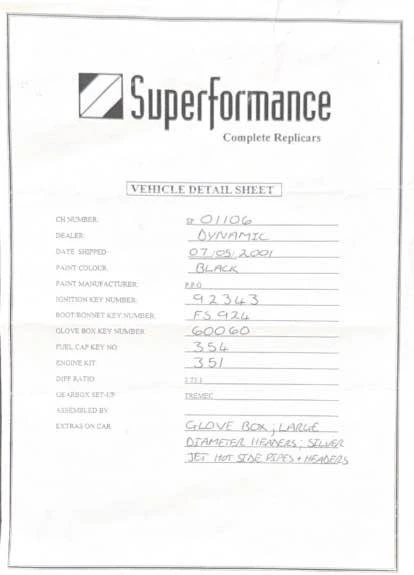 Superformance
Complete Replicars
VEHICLE DETAIL SHEET
CH NUMBER: SP 01106
DEALER: DYNAMIC
DATE SHIPPED: 07/05/2001
PAINT COLOUR: BLACK
PAINT MANUFACTURER: P.P.G
IGNITION KEY NUMBER: 92343
BOOT/BONNET KEY NUMBER: FS 924
GLOVE BOX KEY NUMBER: 60060
FUEL CAP KEY NO: 354
ENGINE KIT: 351
DIFF RATIO:
GEARBOX SET-UP: TREMEC
ASSEMBLED BY:
EXTRAS ON CAR: GLOVE BOX; LARGE
DIAMETER HEADERS; SILVER
JET HOT SIDE PIPES + HEADERS